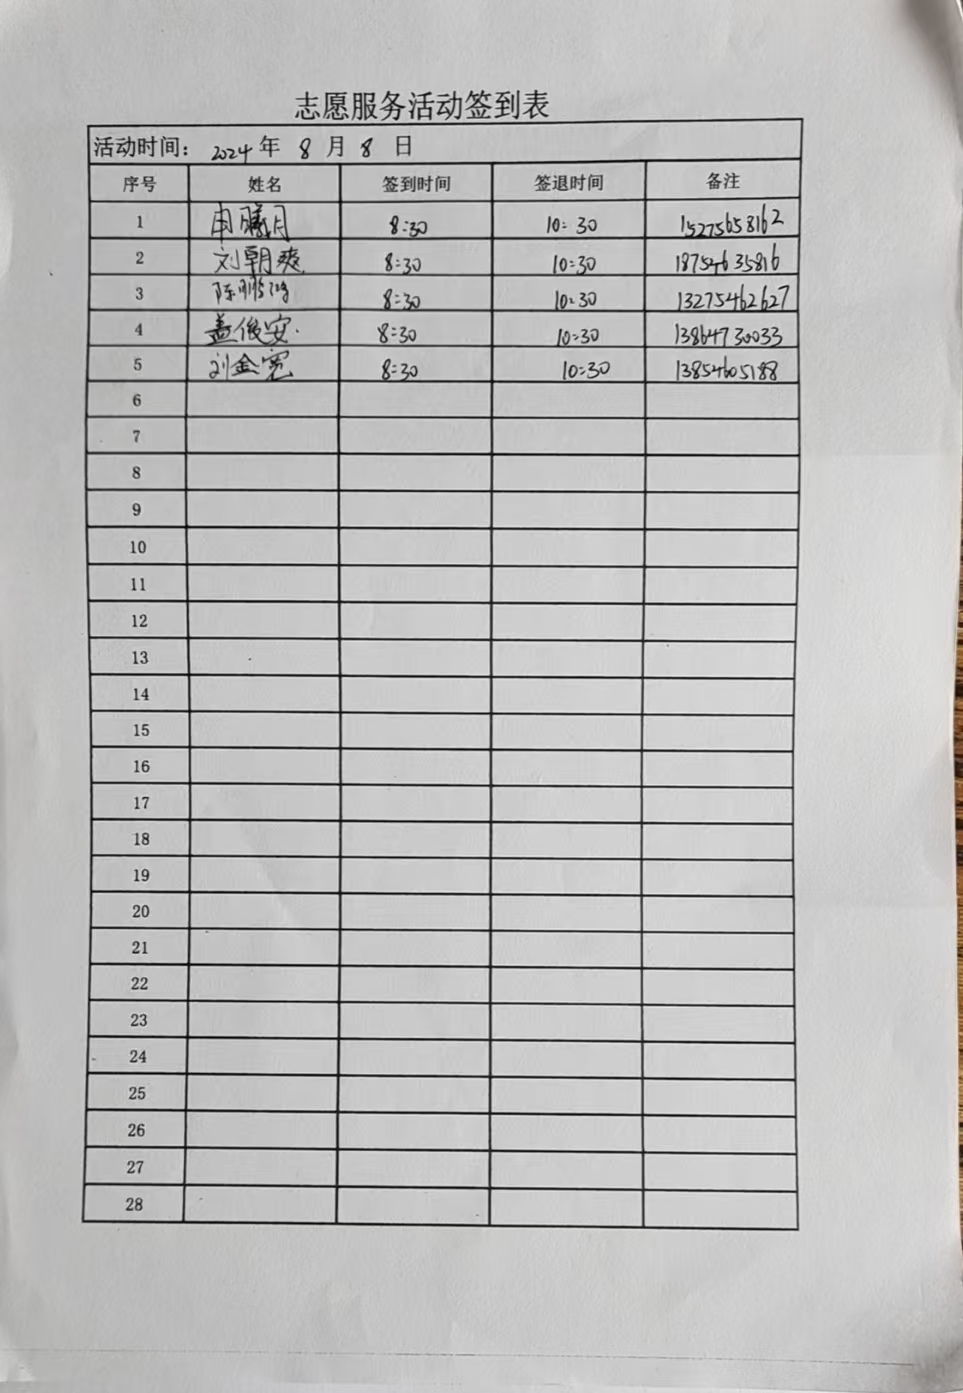 志愿服务活动签到表
活动时间： 2024 年 8 月 8 日
序号 姓名 签到时间 签退时间 备注
1 申曦月 8:30 10:30 15275658162
2 刘朝爽 8:30 10:30 18754635816
3 陈鹏鸿 8:30 10:30 13275462627
4 盖俊安 8:30 10:30 13864730033
5 刘金宽 8:30 10:30 13854605188
6
7
8
9
10
11
12
13
14
15
16
17
18
19
20
21
22
23
24
25
26
27
28